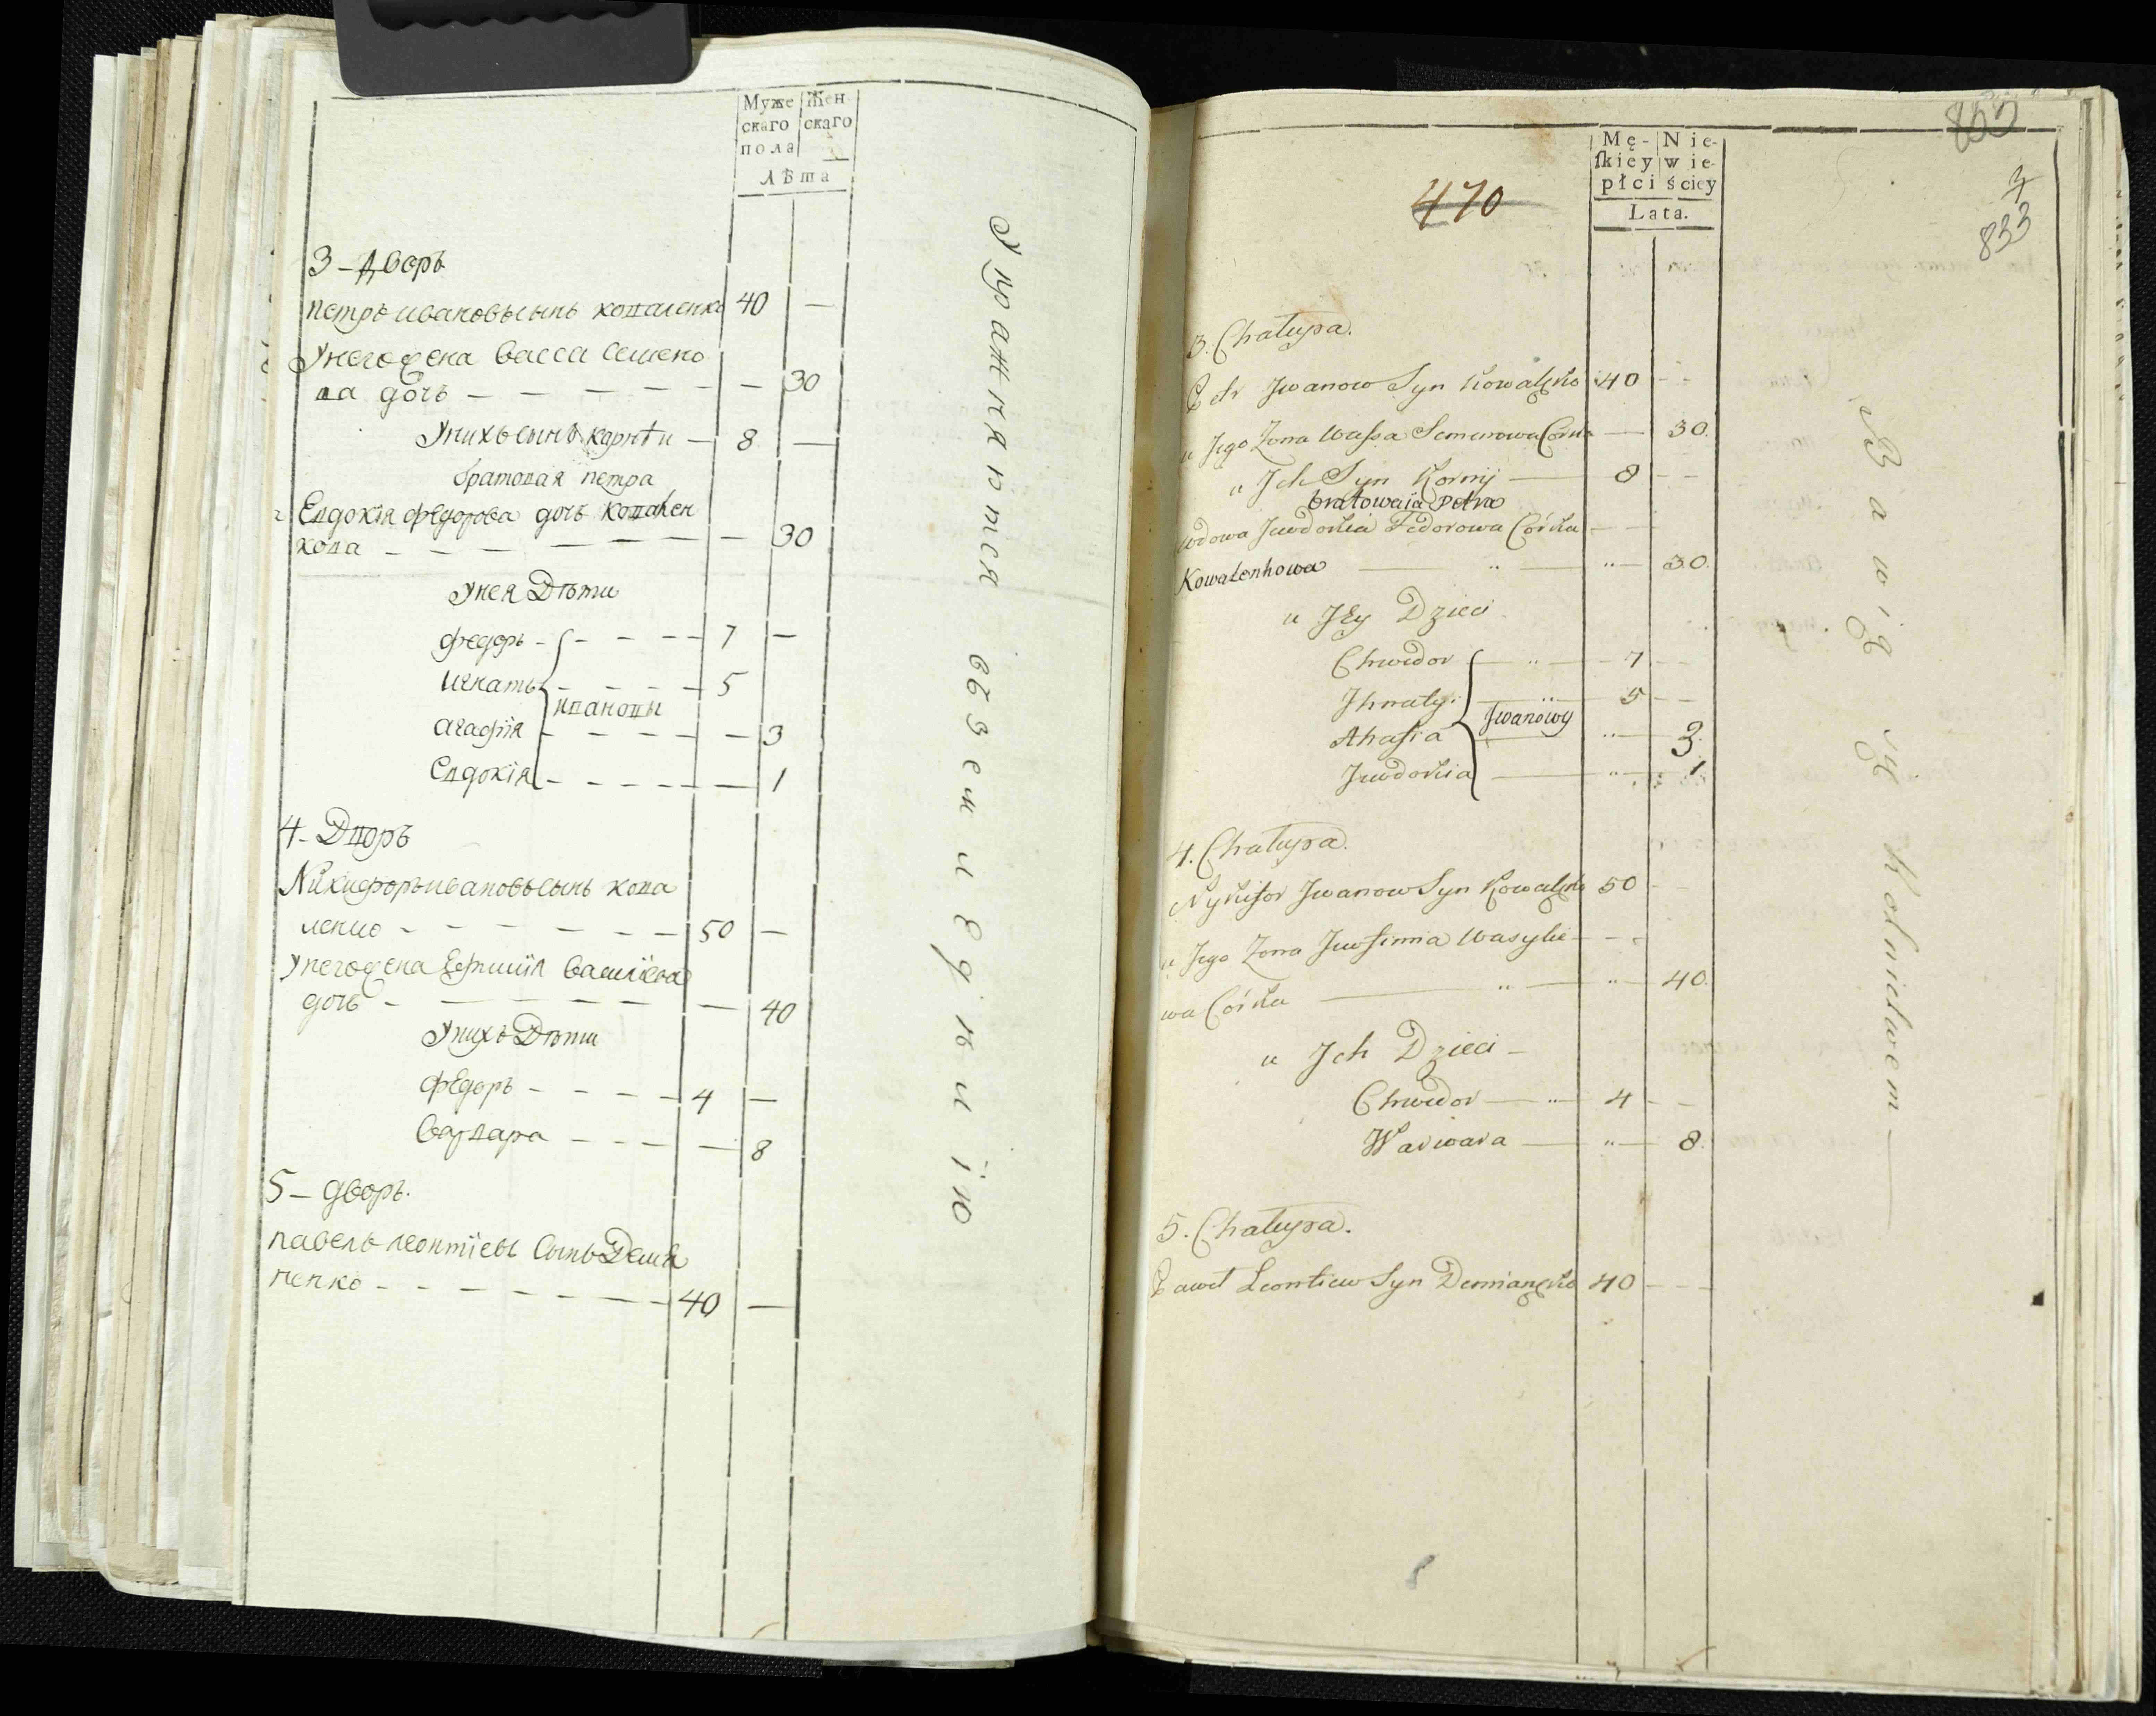 Муже
скаго
пола
Жен
скаго
Лѣта
3 - Дворъ
Петръ ивановъ сынъ коваленко 40 —
Унего жена Васса Семено
ва дочь — — — — — — 30
Унихъ сынъ корнѣи — 8 —
братовая петра
Евдокія федорова дочь ковален
кова — — — — — — 30
Унея Дѣти
федоръ - — — — 7 —
игнатъ - — — — 5
ивановы
агафія - — — — — 3
Евдокія - — — — — 1
4 - Дворъ
Никифоръ ивановъ сынъ кова
ленко - — — — — — 50 —
Унего жена Ефимія Василіева
дочь - — — — — — 40
Унихъ Дѣти
Федоръ - — — — 4 —
Варвара - — — — 8
5 - дворъ.
павелъ леонтіевъ Сынъ Демя
ненко - — — — — — 40 —
Упражняются въ земледѣліи
470
Mę-
skiey
płci
Nie-
wie-
ściey
Lata.
833
3. Chałupa.
Petr Jwanow Syn Kowalęko 40 - -
u Jego Żona Wassa Semenowa Córka — 30.
u Jch Syn Korniy — 8 - -
bratowaia Petra
wdowa Juwdokia Fedorowa Córka — —
Kowalenkowa — „ — „ — 30.
u Jey Dzieci
Chwedor — „ — 7 —
Jhnaty — „ — 5 - -
Jwanowy
Ahafia — „ — 3.
Juwdokia — „ — 1
4. Chałupa.
Nykifor Jwanow Syn Kowalęko 50 - -
u Jego Żona Juwfimia Wasylie — - -
wa Córka — „ — „ — 40.
u Jch Dzieci —
Chwedor — „ — 4 - -
Warwara — „ — 8.
5. Chałupa.
Paweł Leontiew Syn Demianęko 40 - - -
Bawią się Rolnictwem —